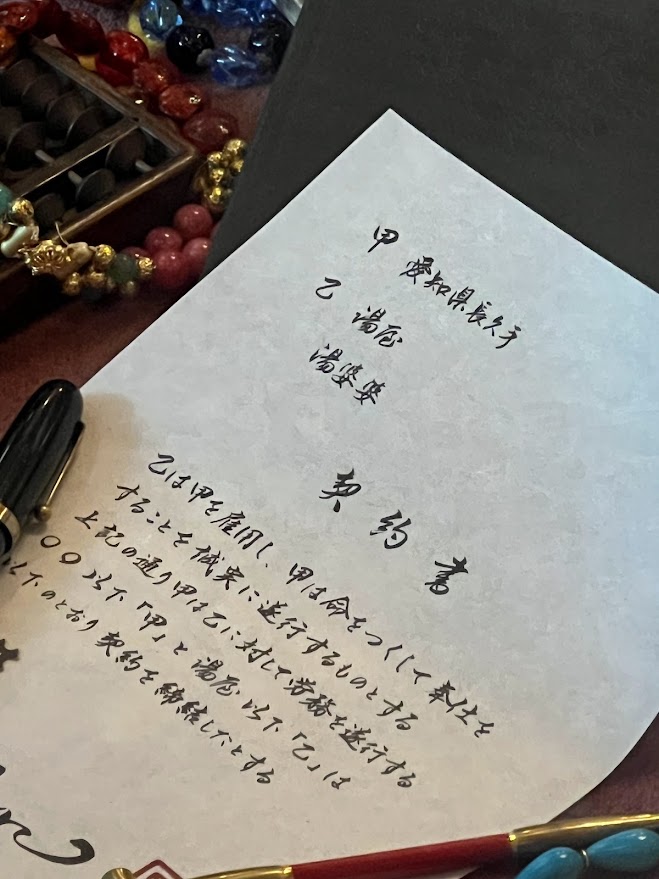 甲 愛知県長久手
乙 湯屋
湯婆婆
契約書
乙は甲を雇用し、甲は命をつくして奉仕を
することを誠実に遂行するものとする
上記の通り甲は乙に対して労務を遂行する
〇〇以下「甲」と湯屋以下「乙」は
以下のとおり契約を締結したとする